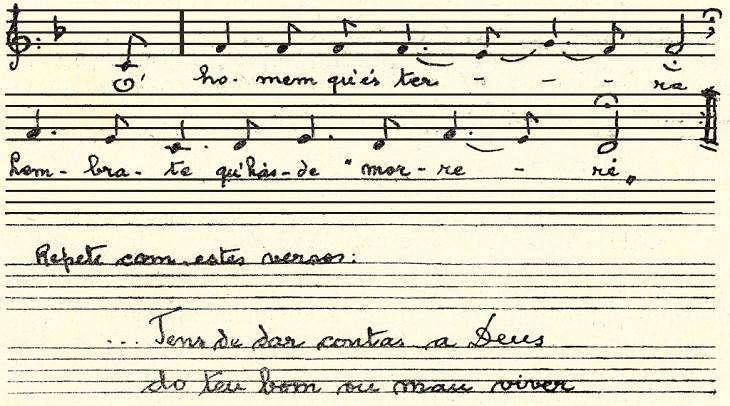 Ó' ho-mem qu'és ter - - - ra
lem-bra-te qu'hás-de "mor-re - ré"
Repete com estes versos:
... Tens de dar contas a Deus
do teu bom ou mau viver